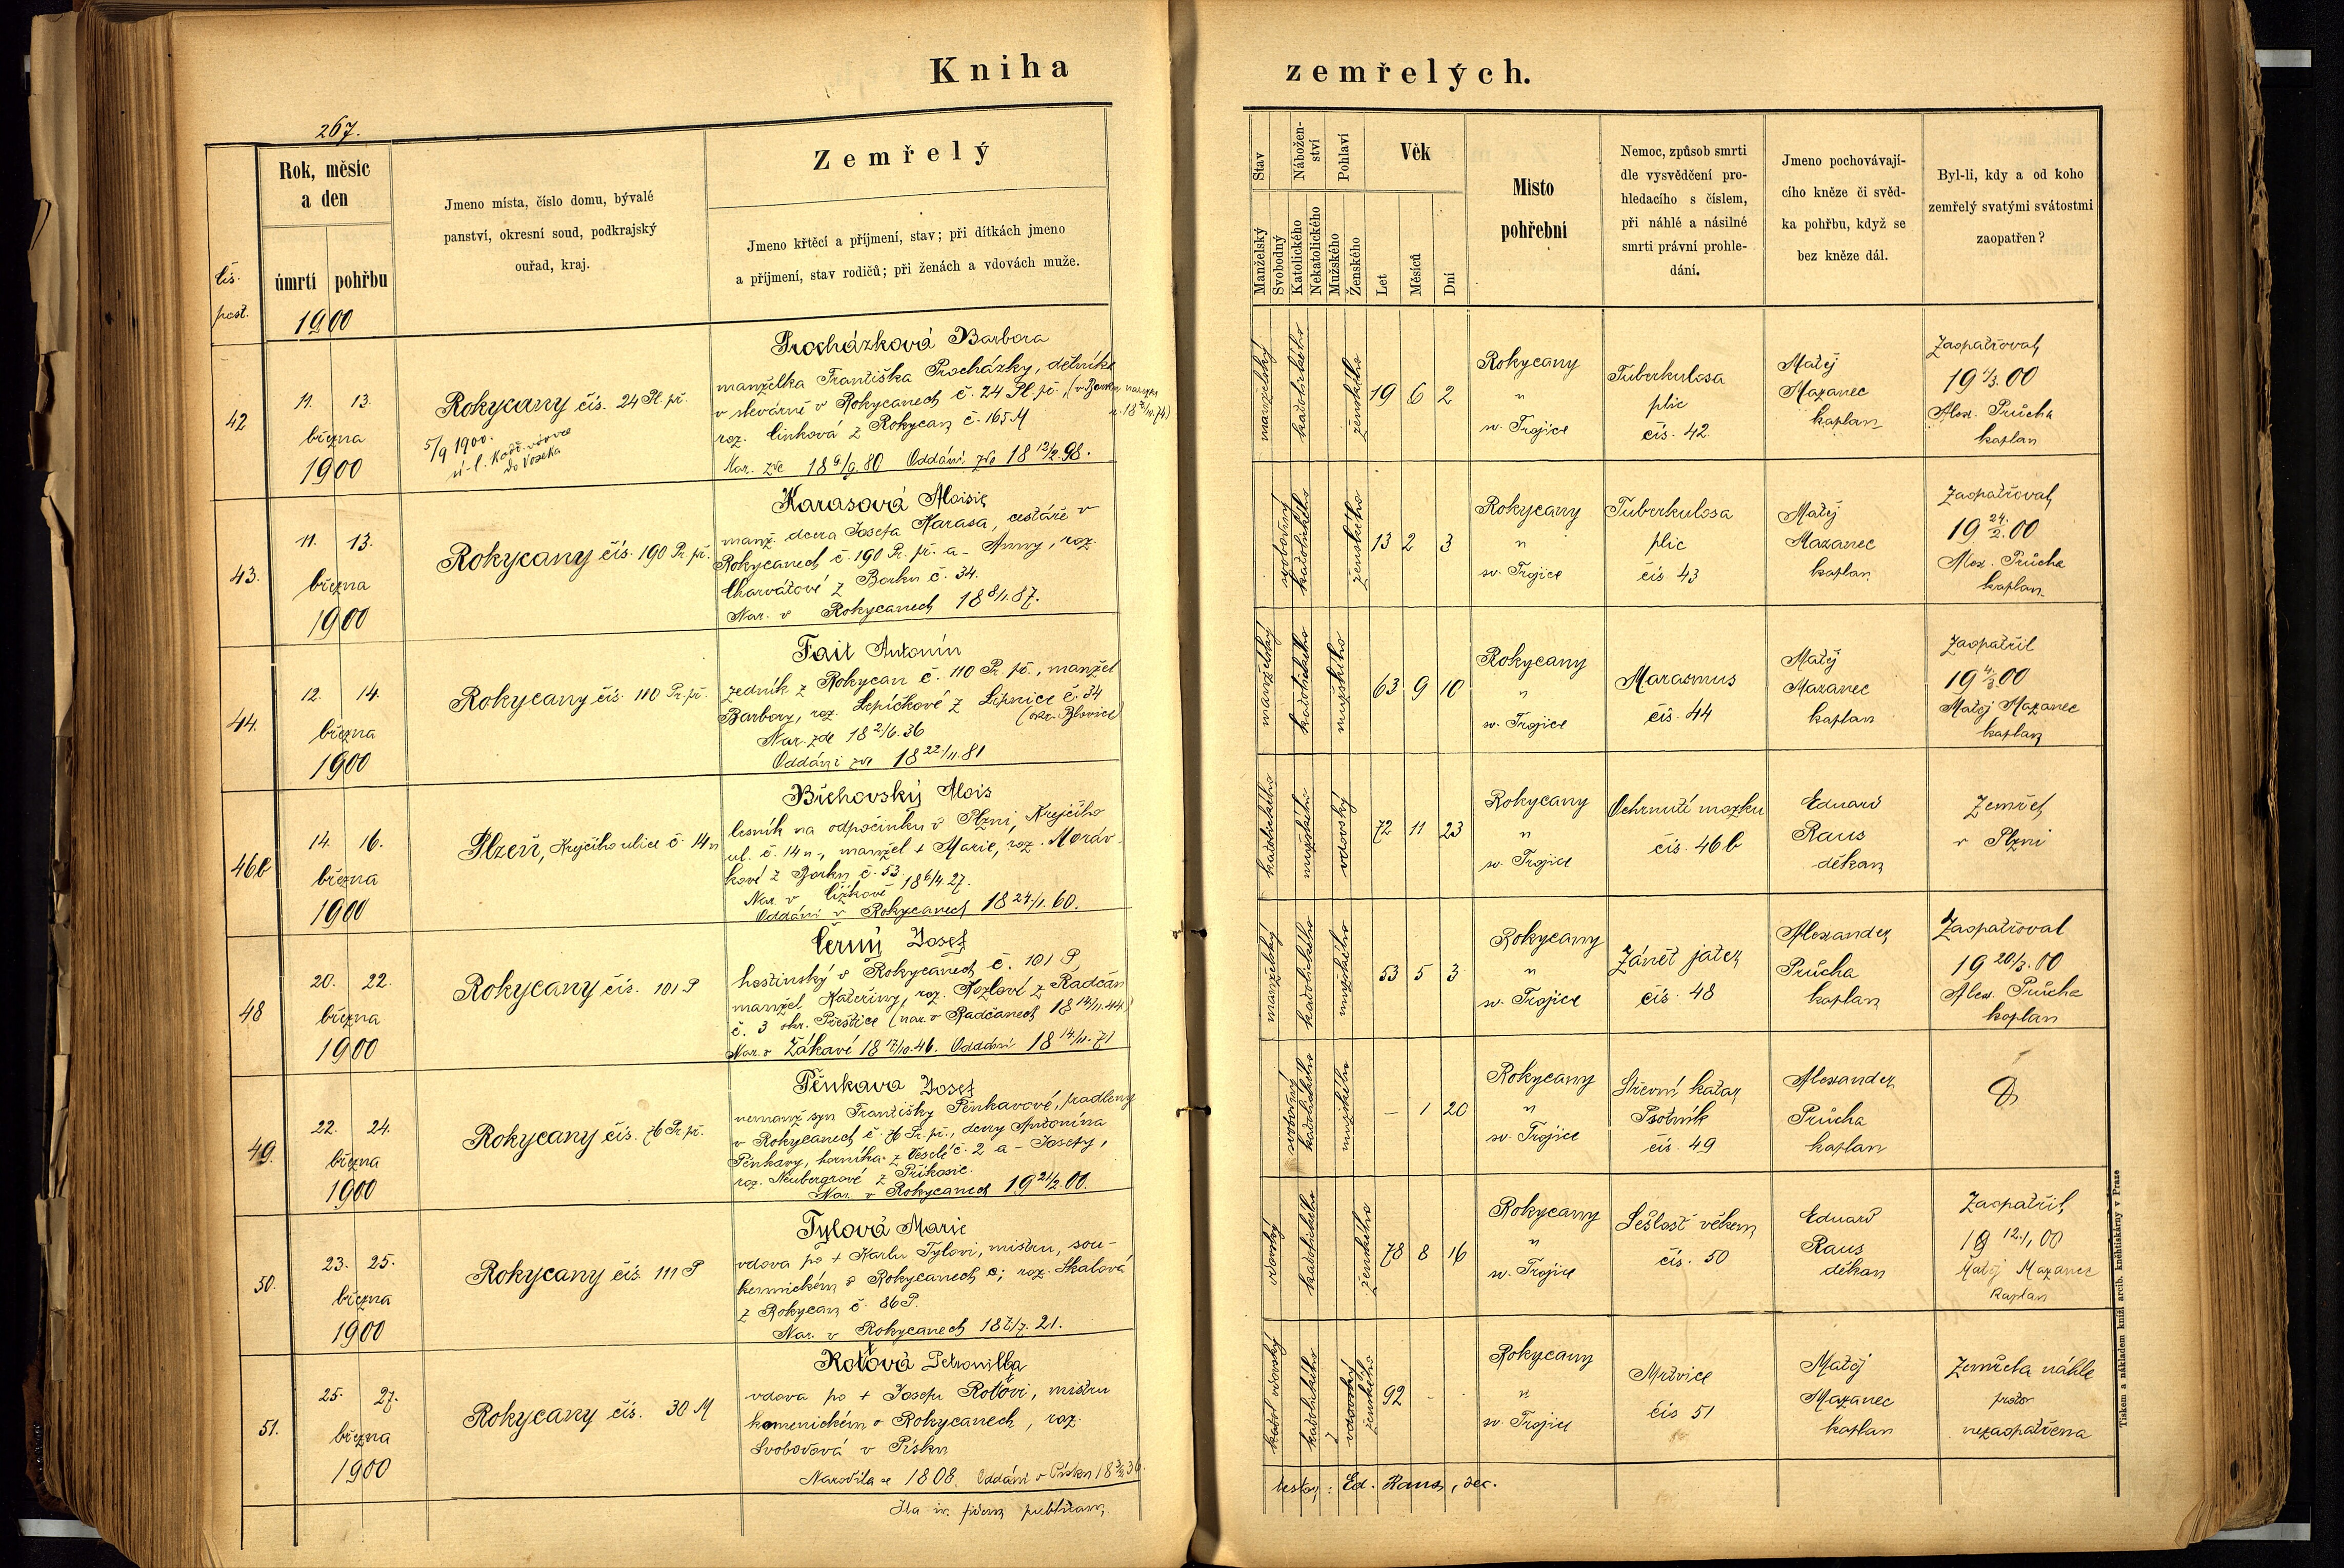 Kniha
zemřelých.
267.
Rok, měsíc
a den
úmrtí
pohřbu
čís.
post.
1900
Jmeno místa, číslo domu, bývalé
panství, okresní soud, podkrajský
ouřad, kraj.
Zemřelý
Jmeno křtěcí a příjmení, stav; při dítkách jmeno
a příjmení, stav rodičů; při ženách a vdovách muže.
Stav
Manželský
Svobodný
Nábožen-
ství
Katolického
Nekatolického
Pohlaví
Mužského
Ženského
Věk
Let
Měsíců
Dní
Místo
pohřební
Nemoc, způsob smrti
dle vysvědčení pro-
hledacího s číslem,
při náhlé a násilné
smrti právní prohle-
dání.
Jmeno pochovávají-
cího kněze či svěd-
ka pohřbu, když se
bez kněze dál.
Byl-li, kdy a od koho
zemřelý svatými svátostmi
zaopatřen?
42
11. 13.
března
1900
Rokycany čís. 24 Pl. př.
5/9 1900.
do Voseka
Procházková Barbora
manželka Františka Procházky, dělníka
v slevárně v Rokycanech č. 24 Pl. př.
roz. Cinková z Rokycan č. 165 M
Nar. zde 18 9/9 80 Oddáni zde 18 12/2 98.
manželský
katolického
ženského
19 6 2
Rokycany
"
sv. Trojice
Tuberkulosa
plic
čís. 42.
Matěj
Mazanec
kaplan
Zaopatřoval
Alex. Průcha
kaplan
43.
11. 13.
března
1900
Rokycany čís. 190 Pr. př.
Karasová Aloisie
manž. dcera Josefa Karasa, cestáře v
Rokycanech č. 190 Pr. př. a Anny, roz.
Charvátové z Borku č. 34.
Nar. v Rokycanech 18 8/1 87.
svobodný
katolického
ženského
13 2 3
Rokycany
"
sv. Trojice
Tuberkulosa
plic
čís. 43
Matěj
Mazanec
kaplan
Zaopatřoval
19 24/2. 00
Alex. Průcha
kaplan
44.
12. 14.
března
1900
Rokycany čís. 110 Pr. př.
Fait Antonín
zedník z Rokycan č. 110 Pr. př., manžel
Barbory, roz. Lepíčkové z Lipnice č. 34
(okr. Blovice)
Nar. zde 18 2/6. 36
Oddáni zde 18 22/11. 81
manželský
katolického
mužského
63 9 10
Rokycany
"
sv. Trojice
Marasmus
čís. 44
Matěj
Mazanec
kaplan
Zaopatřil
Matěj Mazanec
kaplan
46b
14. 16.
března
1900
Plzeň, Krejčího ulice č. 14n
Břehovský Alois
lesník na odpočinku v Plzni, Krejčího
ul. č. 14n., manžel + Marie, roz. Moráv-
kové z Borku č. 53
Nar. v Čížkově 18 6/4. 27.
Oddáni v Rokycanech 18 24/1. 60.
katolického
mužského
vdovský
72 11 23
Rokycany
"
sv. Trojice
Ochrnutí mozku
čís. 46b
Eduard
Raus
děkan
Zemřel
v Plzni
48
20. 22.
března
1900
Rokycany čís. 101 P
Černý Josef
hostinský v Rokycanech č. 101 P,
manžel Kateřiny, roz. Kozlové z Radčan
č. 3 okr. Přeštice (nar. v Radčanech 18 14/11. 44)
Nar. v Žákavě 18 17/10. 46. Oddáni 18 14/11. 71
manželský
katolického
mužského
53 5 3
Rokycany
"
sv. Trojice
Zánět jater
čís. 48
Alexander
Průcha
kaplan
Zaopatřoval
19 20/3. 00
Alex. Průcha
kaplan
49.
22. 24.
března
1900
Rokycany čís. 76 Pr. př.
Pěnkava Josef
nemanž. syn Františky Pěnkavové, pradleny
v Rokycanech č. 76 Pr. př., dcery Antonína
Pěnkavy, horníka z Veselé č. 2 a Josefy,
roz. Neubergrové z Příkosic.
Nar. v Rokycanech 19 2/2. 00.
svobodný
katolického
mužského
– 1 20
Rokycany
"
sv. Trojice
Střevní katar
Psotník
čís. 49
Alexander
Průcha
kaplan
50.
23. 25.
března
1900
Rokycany čís. 111 P
Tylová Marie
vdova po + Karlu Tylovi, mistru sou-
kenickém v Rokycanech č; roz. Skalová
z Rokycan č. 86 P.
Nar. v Rokycanech 18 7/7. 21.
vdovský
katolického
ženského
78 8 16
Rokycany
"
sv. Trojice
Sešlost věkem
čís. 50
Eduard
Raus
děkan
Zaopatřil
19 12/1 00
Matěj Mazanec
kaplan
51.
25. 27.
března
1900
Rokycany čís. 30 M
Roťová Petronilla
vdova po + Josefu Roťovi, mistru
kamenickém v Rokycanech, roz.
Svobodová v Písku
Narodila se 1808. Oddáni v Písku
vdovský
katolického
ženského
92 –
Rokycany
"
sv. Trojice
Mrtvice
čís 51
Matěj
Mazanec
kaplan
Zemřela náhle
proto
nezaopatřena
Ita in fidem publicam,
testor: Ed. Raus, dec.
Tiskem a nákladem kníž. arcib. knihtiskárny v Praze